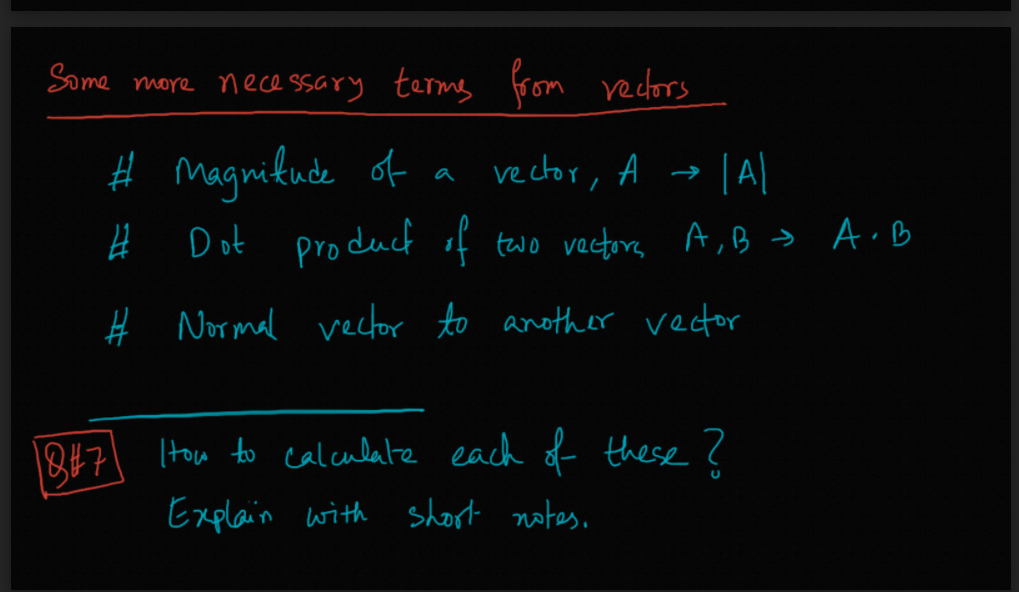 Some more necessary terms from vectors
# Magnitude of a vector, A → |A|
# Dot product of two vectors A, B → A · B
# Normal vector to another vector
Q#7 How to calculate each of these?
Explain with short notes.